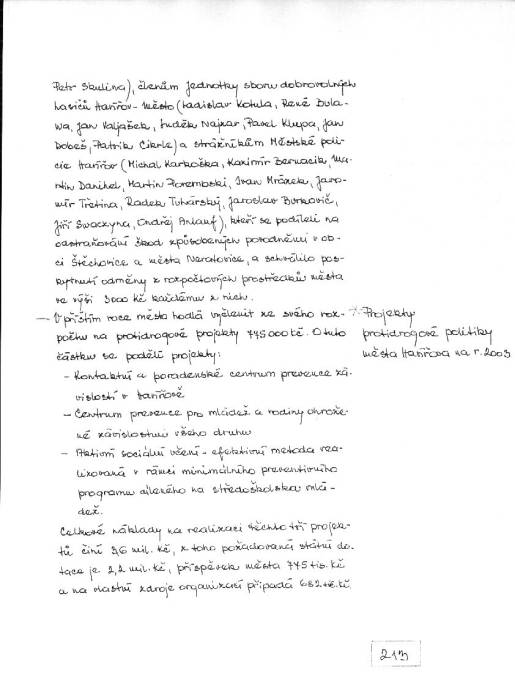 Petr Skulina), členům jednotky sboru dobrovolných
hasičů Havířov-město (Ladislav Kotula, René Bula-
wa, Jan Valjašek, Luděk Najzar, Pavel Klupa, Jan
Dobeš, Patrik Cikrle) a strážníkům Městské poli-
cie Havířov (Michal Karkoška, Kazimír Bernacik, Ma-
rtin Danihel, Martin Poremboski, Ivan Mrázek, Jaro-
mír Třetina, Radek Tuhárský, Jaroslav Burkovič,
Jiří Swaczyna, Ondřej Anlauf), kteří se podíleli na
odstraňování škod způsobených povodněmi v ob-
ci Štěchovice a města Neratovice, a schválilo pos-
kytnutí odměny z rozpočtových prostředků města
ve výši 3000 Kč každému z nich.
— V příštím roce město hodlá vyčlenit ze svého roz-
počtu na protidrogové projekty 775 000 Kč. O tuto
částku se podělí projekty:
- Kontaktní a poradenské centrum prevence zá-
vislostí v Havířově
- Centrum prevence pro mládež a rodiny ohrože-
né závislostmi všeho druhu
- Aktivní sociální učení - efektivní metoda rea-
lizovaná v rámci minimálního preventivního
programu cíleného na středoškolskou mlá-
dež.
Celkové náklady na realizaci těchto tří projek-
tů činí 3,6 mil. Kč, z toho požadovaná státní do-
tace je 2,2 mil. Kč, příspěvek města 775 tis. Kč
a na vlastní zdroje organizací připadá 682 tis. Kč.
Projekty
protidrogové politiky
města Havířova na r. 2003
213